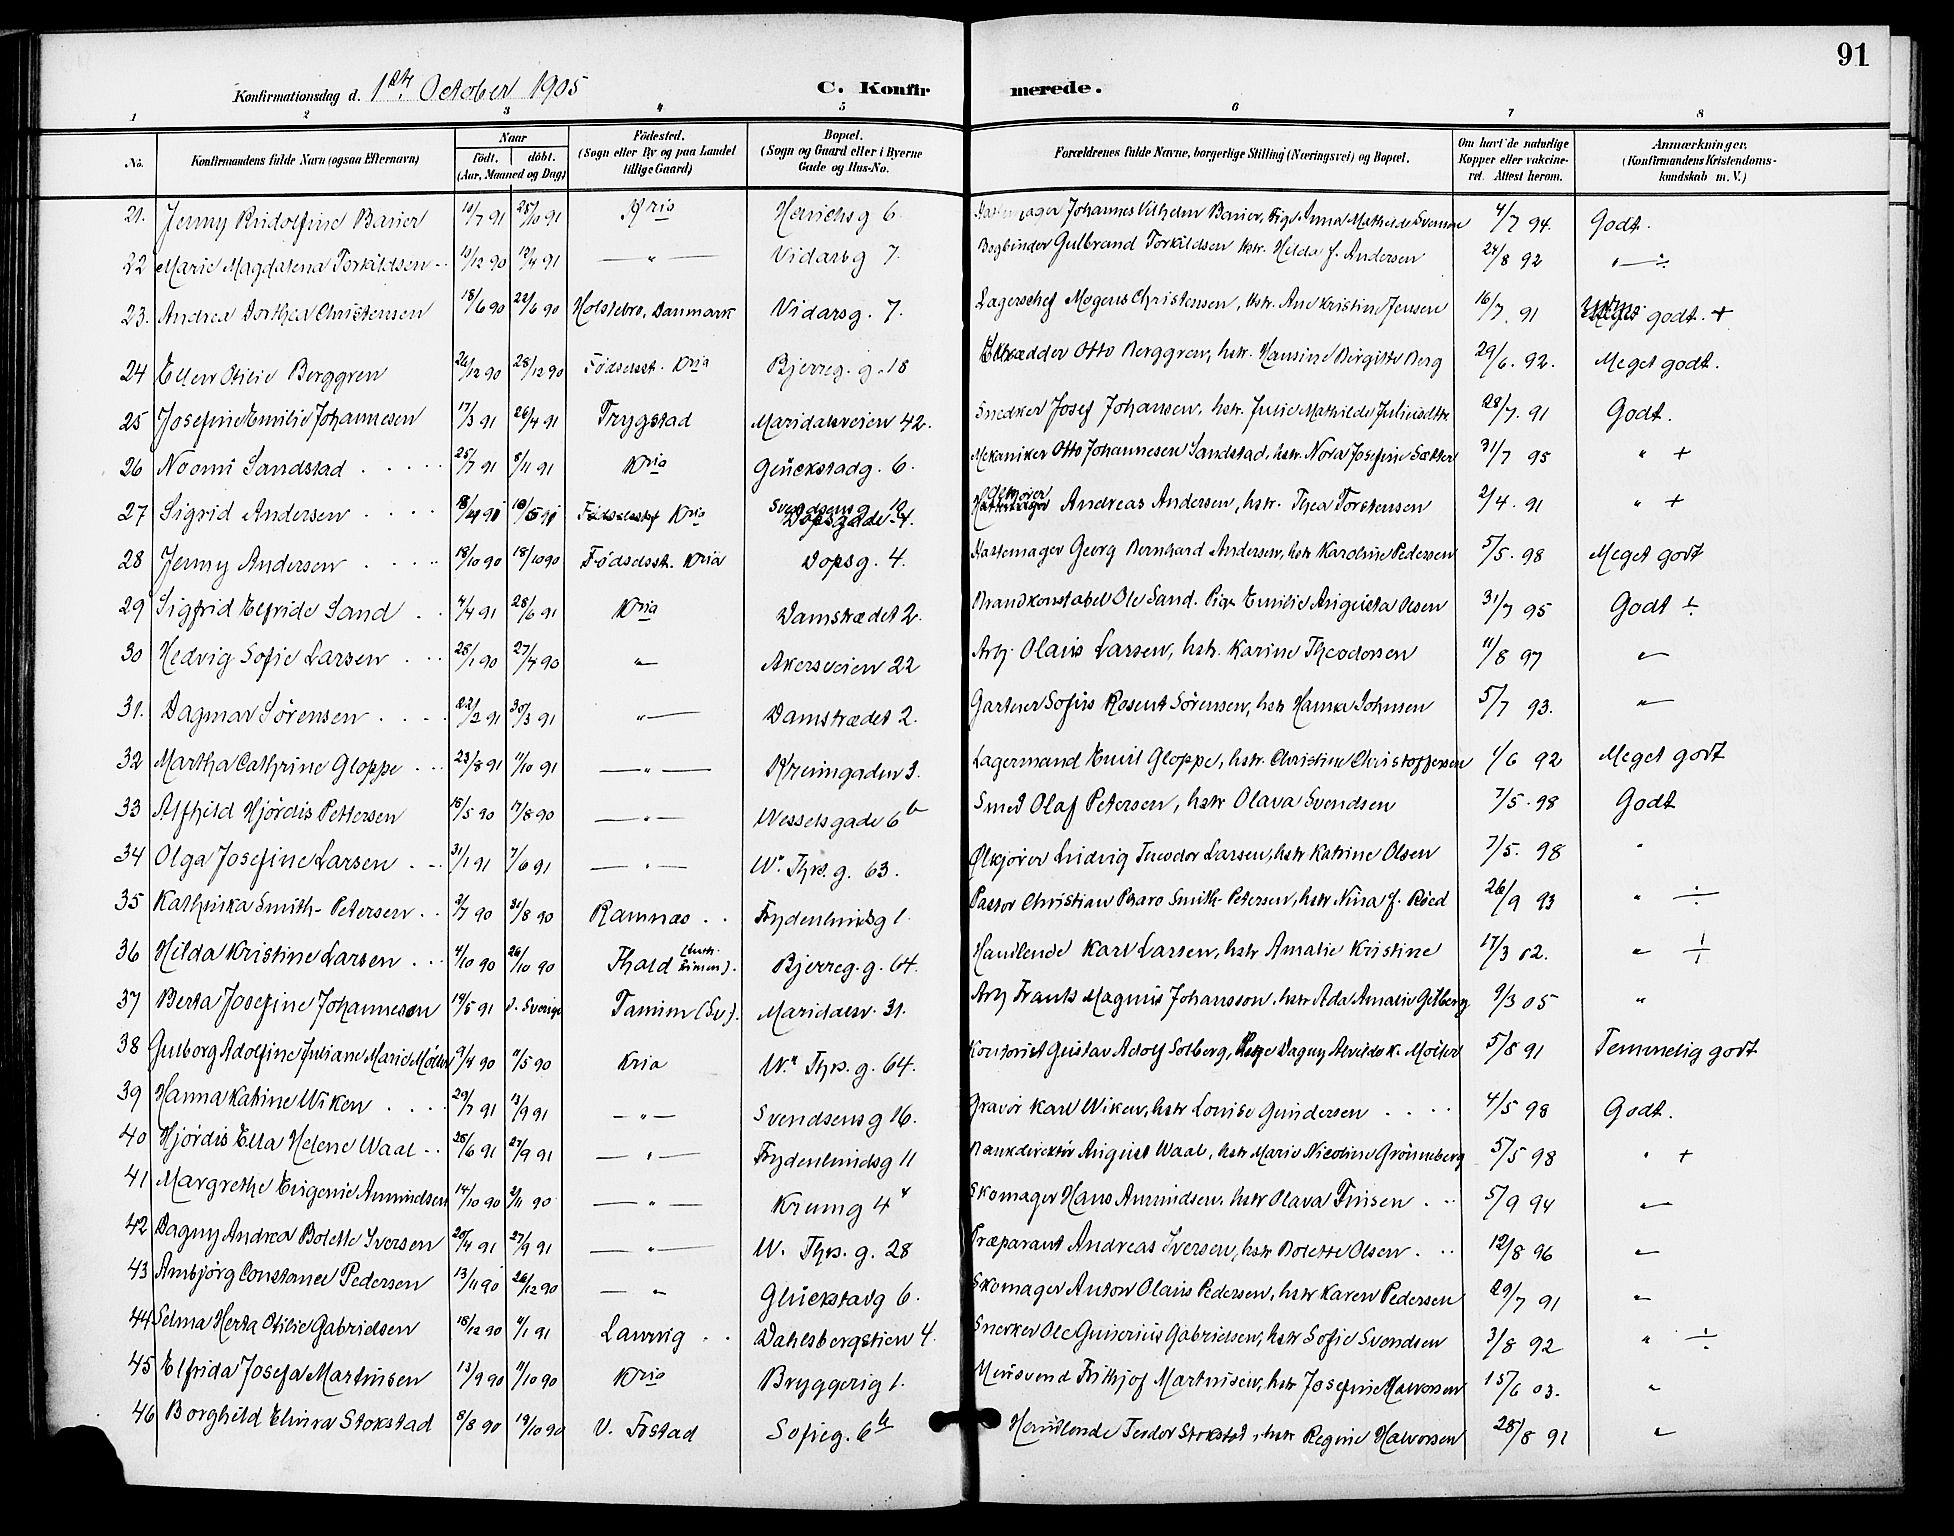 91
Konfirmationsdag d. 1ste October 1905 C. Konfirmerede.
1 2 3 4 5 6 7 8
No. Konfirmandens fulde Navn (ogsaa Efternavn) Naar födt. döbt. (Aar, Maaned og Dag) Födested. (Sogn eller By og paa Landet tillige Gaard) Bopæl. (Sogn og Gaard eller i Byerne Gade og Hus-No. Forældrenes fulde Navne, borgerlige Stilling (Næringsvei) og Bopæl. Om havt de naturlige Kopper eller vakcineret. Attest herom. Anmærkninger. (Konfirmandens Kristendomskundskab m. V.)
21. Jenny Rudolfine Barier 10/7 91 25/10 91 Kria g 6. Johannes Vilhelm Barier, Pige Anna Mathilde 4/7 94. Godt.
22 Marie Magdalena Torkildsen 13/12 90 12/4 91 — " — Vidarsg 7. Bogbinder Gulbrand Torkildsen hstr. Hilda f. Andersen 24/8 92 " ÷
23. Andrea Dorthea Christensen 18/6 90 22/6 90 Holstebro, Danmark Vidarsg. 7. Lagerschef Mogens Christensen, hstr. Ane Kristine Jensen 16/7 91 godt. +
24 Ellen Otilie Berggren 26/12 90 28/12 90 Födselsst. Kria Bjerreg. g. 18 Otto Berggren, hstr. Hansine Birgitte Berg 29/6. 92. Meget godt.
25 Josefine Emilie Johannesen 17/3 91 26/4 91 Trygstad Maridalsveien 42. Snedker Josef Johansen, hstr. Julie Mathilde 28/7. 91 Godt.
26 Noomi Sandstad 25/7 91 8/11 91 Kria Glückstadg. 6. Mekaniker Otto Johannesen Sandstad, hstr. Nora Josefine Sætter 31/7 95 " +
27 Sigrid Andersen Födselsst Kria Svendsensg Dopsgade 4. Andreas Andersen, hstr. Thea Torstensen 2/4. 91 " +
28 Jenny Andersen 18/10 90 18/10 90 Födselsst. Kria Dopsg. 4. Georg Bernhard Andersen, hstr Karoline Pedersen 5/5. 98 Meget godt
29 Sigfrid Elfride Sand 4/4 91 28/6 91 Kria Damstrædet 2. Brandkonstabel Ole Sand. Pige Emilie Augusta Olsen 31/7 95 Godt ÷
30 Hedvig Sofie Larsen 28/1 90 27/4 90 " Akersveien 22 Arb. Olaus Larsen, hstr. Karine Theodorsen 11/8 97 "
31. Dagmar Sörensen 22/2 91 30/3 91 " — Damstrædet 2. Gartner Sofus Rosent Sörensen, hstr Hanna Johnsen 5/7 93. "
32 Martha Cathrine Gloppe 23/8 91 11/10 91 — " — Krumgaden 3. Lagermand Emil Gloppe, hstr. Christine Christoffersen 1/6 92 Meget godt
33 Alfhild Hjördis Pettersen 16/5 90 17/8 90 — " — Wesselsgade 6b Smed Olaf Petersen, hstr Olava Svendsen 7/5. 98 Godt
34 Olga Josefine Larsen 31/1 91 7/6 91 — " — W. Thrs. g. 63. Ølkjörer Ludvig Teodor Larsen, hstr Katrine Olsen 7/5. 98 "
35 Kathinka Smith-Petersen 2/7 90 31/8 90 Ramnæs Frydenlundsg 1. Pastor Christian Pharo Smith-Petersen, hstr Nina f. Röed 26/9 93 " ÷
36 Hilda Kristine Larsen 4/10 90 26/10 90 Bjerreg. g. 64. Handlende Karl Larsen, hstr Amalie Kristine 17/3 02. "
37 Berta Josefine Johannesen 19/5 91 i Sverige Tanum (Sv). Maridalsv. 31. Arb Frants Magnus Johansson, hstr Ada Amalie 9/3 05 "
38 Gulborg Adolfine Juliane Marie Möller 9/4 90 11/5 90 Kria W. Thrs. g. 64. Kontorist Gustav Adolf Solberg, Pige Dagny Alvilda K. Möller 5/8 91 Temmelig godt
39 Hanna Katrine Wiken 29/7 91 13/9 91 — " — Svendsensg 16. Gravör Karl Wiken, hstr Louise Gundersen 4/5 98 Godt.
40 Hjördis Ella Helene Waal 25/6 91 27/9 91 — " — Frydenlundsg 11 Bankdirektör August Waal, hstr Marie Nicoline Grönneberg 5/5 98 " +
41 Margrethe Eugenie Amundsen 14/10 90 2/11 90 — " — Krumg 4 Skomager Hans Amundsen, hstr Olava Finsen 5/9 94 "
42 Dagny Andrea Bolette Iversen 28/4 91 27/9 91 — " — W. Thrs. g. 28 Præparant Andreas Iversen, hstr Bolette Olsen 12/8 96 "
43 Ambjörg Constance Pedersen 13/11 90 26/12 90 — " Glückstadg 6. Skomager Anton Olaus Pedersen, hstr Karen Pedersen 29/7 91 "
44 Selma Herta Otilie Gabrielsen 18/12 90 4/1 91 Laurvig Dahlsbergstien 4. Snerker Ole Guserius Gabrielsen, hstr Sofie Svendsen 3/8 92 " ÷
45 Elfrida Josefa Martinsen 13/9 90 11/10 90 Kria Bryggerig 1. Mursvend Fritjof Martinsen, hstr Josefine Halvorsen 15/6 03. "
46 Borghild Elvira Stokstad 8/8 90 19/10 90 V. Fostad Sofieg. 6b Handlende Teodor Stokstad, hstr Regine Halvorsen 28/8 91 "